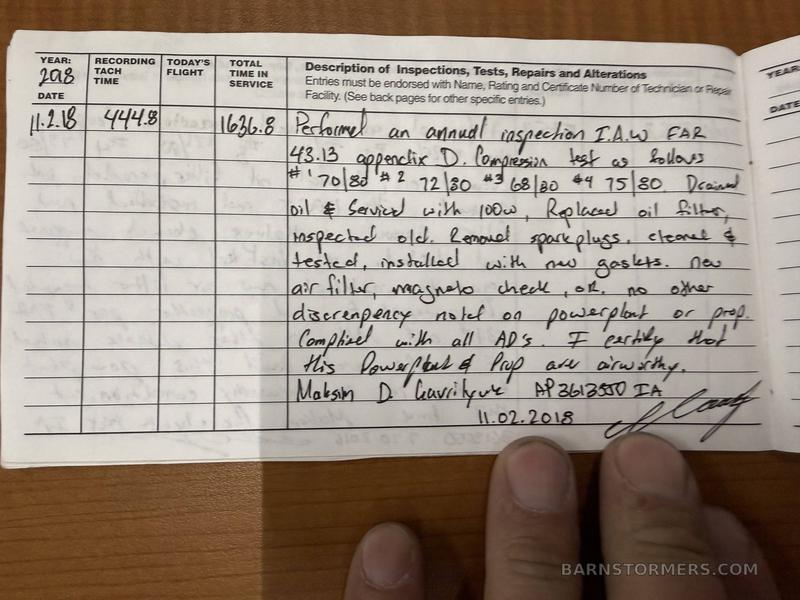 YEAR:
2018
DATE
RECORDING TACH TIME
TODAY'S FLIGHT
TOTAL TIME IN SERVICE
Description of Inspections, Tests, Repairs and Alterations
Entries must be endorsed with Name, Rating and Certificate Number of Technician or Repair
Facility. (See back pages for other specific entries.)
11.2.18 444.8 1636.8 Performed an annual inspection I.A.W FAR
43.13 appendix D. Compression test as follows
#1 70/80 #2 72/80 #3 68/80 #4 75/80. Drained
oil & Serviced with 100w, Replaced oil filter,
inspected old. Removed sparkplugs, cleaned &
tested, installed with new gaskets. new
air filter, magneto check, OK. no other
discrenpency noted on powerplant or prop.
Complied with all AD's. I certify that
this Powerplant & Prop are airworthy.
Maksim D. AP3613550 IA
11.02.2018
YEAR
DATE
BARNSTORMERS.COM